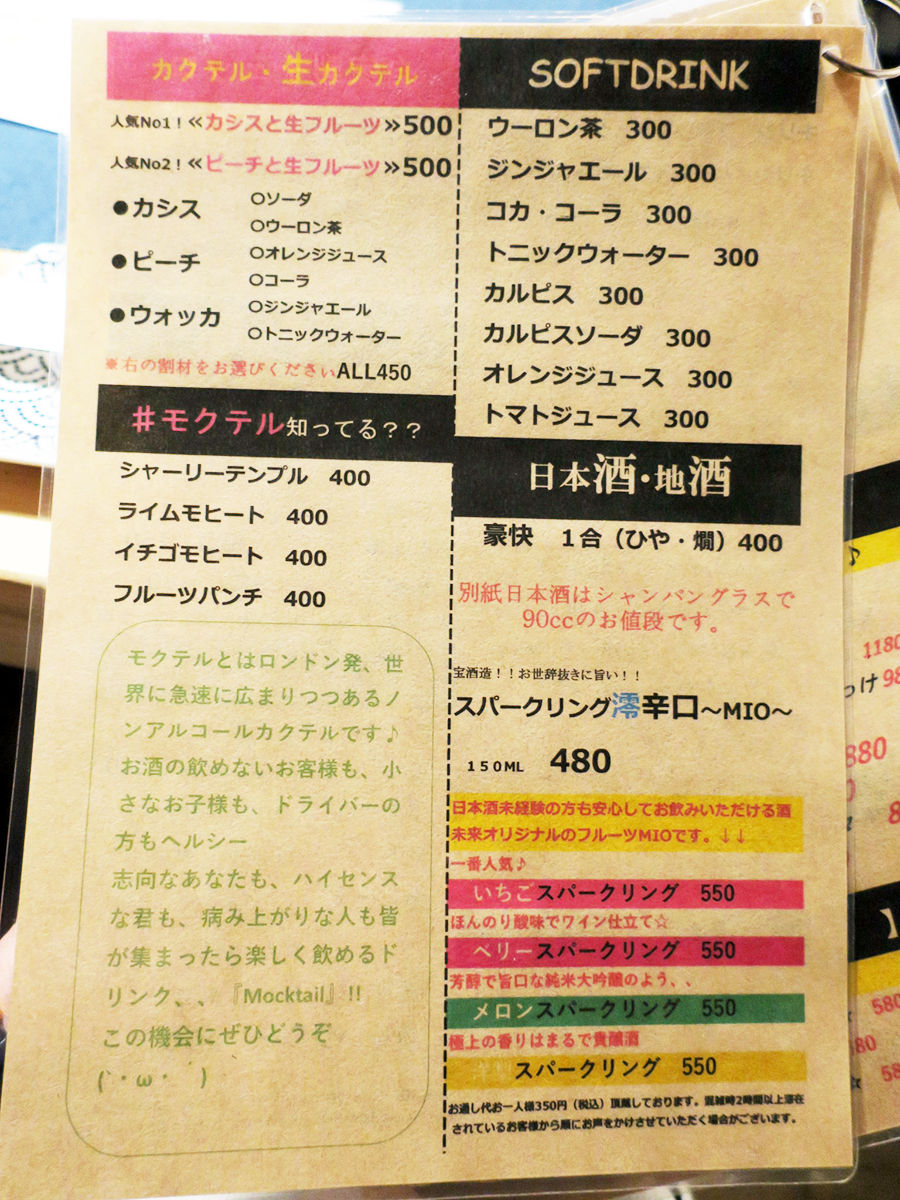 カクテル・生カクテル
人気No1！≪カシスと生フルーツ≫500
人気No2！≪ピーチと生フルーツ≫500
●カシス
●ピーチ
●ウォッカ
○ソーダ
○ウーロン茶
○オレンジジュース
○コーラ
○ジンジャエール
○トニックウォーター
※右の割材をお選びくださいALL450
#モクテル知ってる？？
シャーリーテンプル 400
ライムモヒート 400
イチゴモヒート 400
フルーツパンチ 400
モクテルとはロンドン発、世
界に急速に広まりつつあるノ
ンアルコールカクテルです♪
お酒の飲めないお客様も、小
さなお子様も、ドライバーの
方もヘルシー
志向なあなたも、ハイセンス
な君も、病み上がりな人も皆
が集まったら楽しく飲めるド
リンク、、『Mocktail』!!
この機会にぜひどうぞ
(｀・ω・´)
SOFTDRINK
ウーロン茶 300
ジンジャエール 300
コカ・コーラ 300
トニックウォーター 300
カルピス 300
カルピスソーダ 300
オレンジジュース 300
トマトジュース 300
日本酒・地酒
豪快 1合（ひや・燗）400
別紙日本酒はシャンパングラスで
90ccのお値段です。
宝酒造！！お世辞抜きに旨い！！
スパークリング澪辛口～MIO～
150ML 480
日本酒未経験の方も安心してお飲みいただける酒
未来オリジナルのフルーツMIOです。↓↓
一番人気♪
いちごスパークリング 550
ほんのり酸味でワイン仕立て☆
ベリースパークリング 550
芳醇で旨口な純米大吟醸のよう、、
メロンスパークリング 550
極上の香りはまるで貴醸酒
スパークリング 550
お通し代お一人様350円（税込）頂戴しております。混雑時2時間以上滞在
されているお客様から順にお声をかけさせていただく場合がございます。
♪
1180
つけ 98
880
8
580
580
58